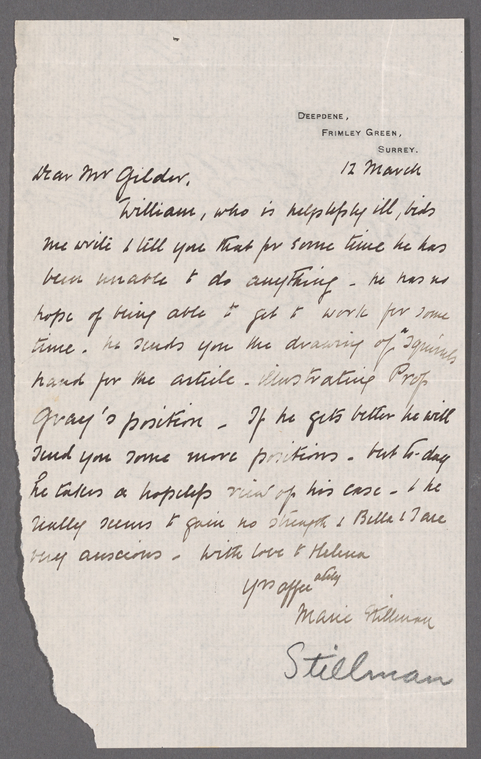 DEEPDENE,
FRIMLEY GREEN,
SURREY.
12 March
Dear Mr Gilder,
William, who is helplessly ill, bids
me write & tell you that for some time he has
been unable to do anything - he has no
hope of being able to get to work for some
time. he sends you the drawing of "Squirrels
hand for the article - illustrating Prof
Gray's position - If he gets better he will
send you some more positions - but to-day
he takes a hopeless view of his case - & he
really seems to gain no strength & Bella & I are
very anxious - With love to Helena
Yrs affectionately
Marie Stillman
Stillman